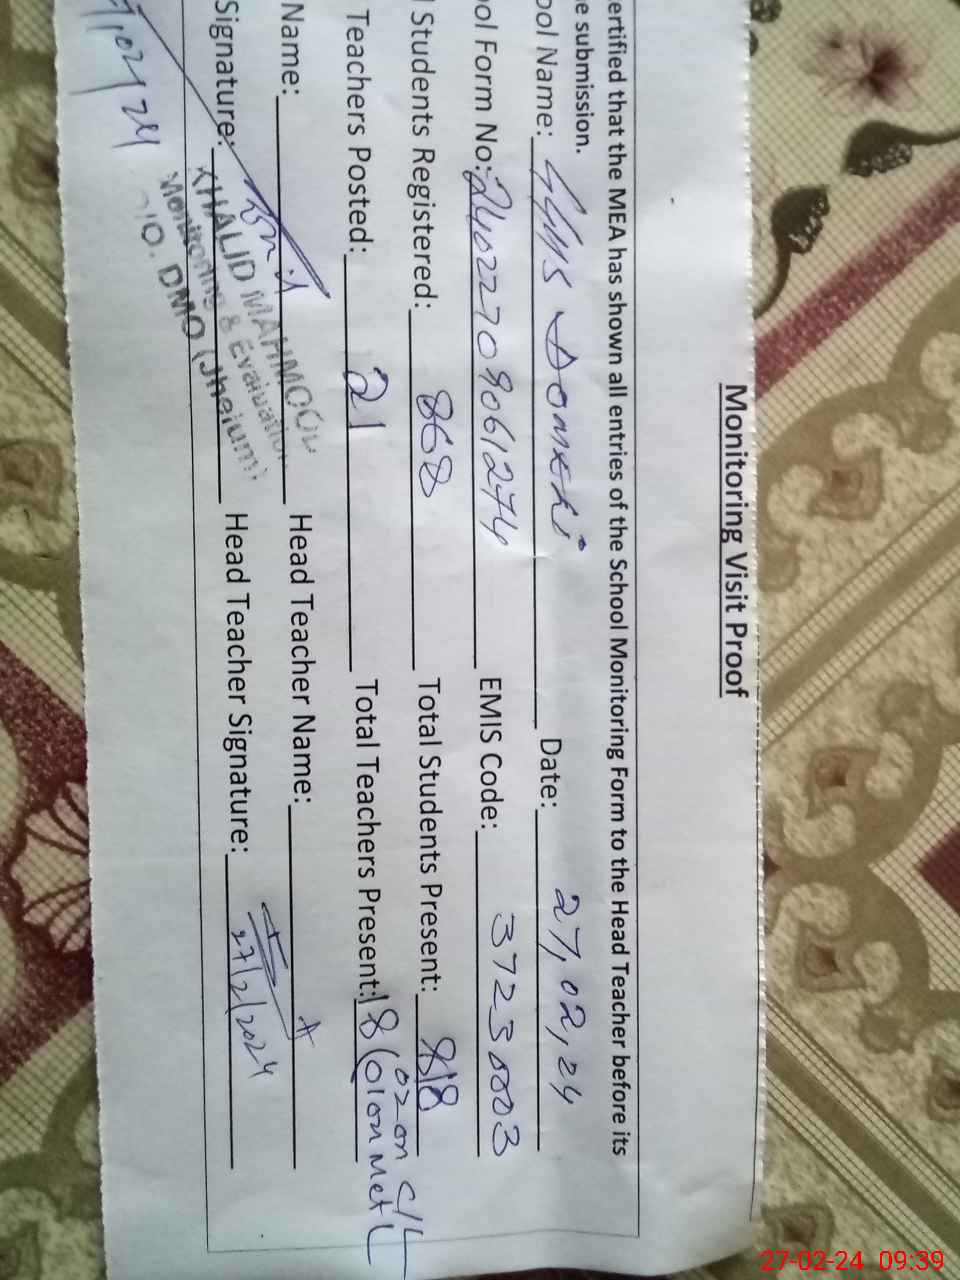 Monitoring Visit Proof
ertified that the MEA has shown all entries of the School Monitoring Form to the Head Teacher before its
e submission.
ool Name: GHS Domeli Date: 27,02,24
ool Form No: 24022709061274 EMIS Code: 37230003
l Students Registered: 868 Total Students Present: 818
Teachers Posted: 21 Total Teachers Present: 18 (01 on Met L
02 on C/L
Name: Head Teacher Name:
Signature: Head Teacher Signature: 27/2/2024
KHALID MAHMOOD
Monitoring & Evaluation
O/O. DMO (Jhelum)
7,02,24
27-02-24 09:39